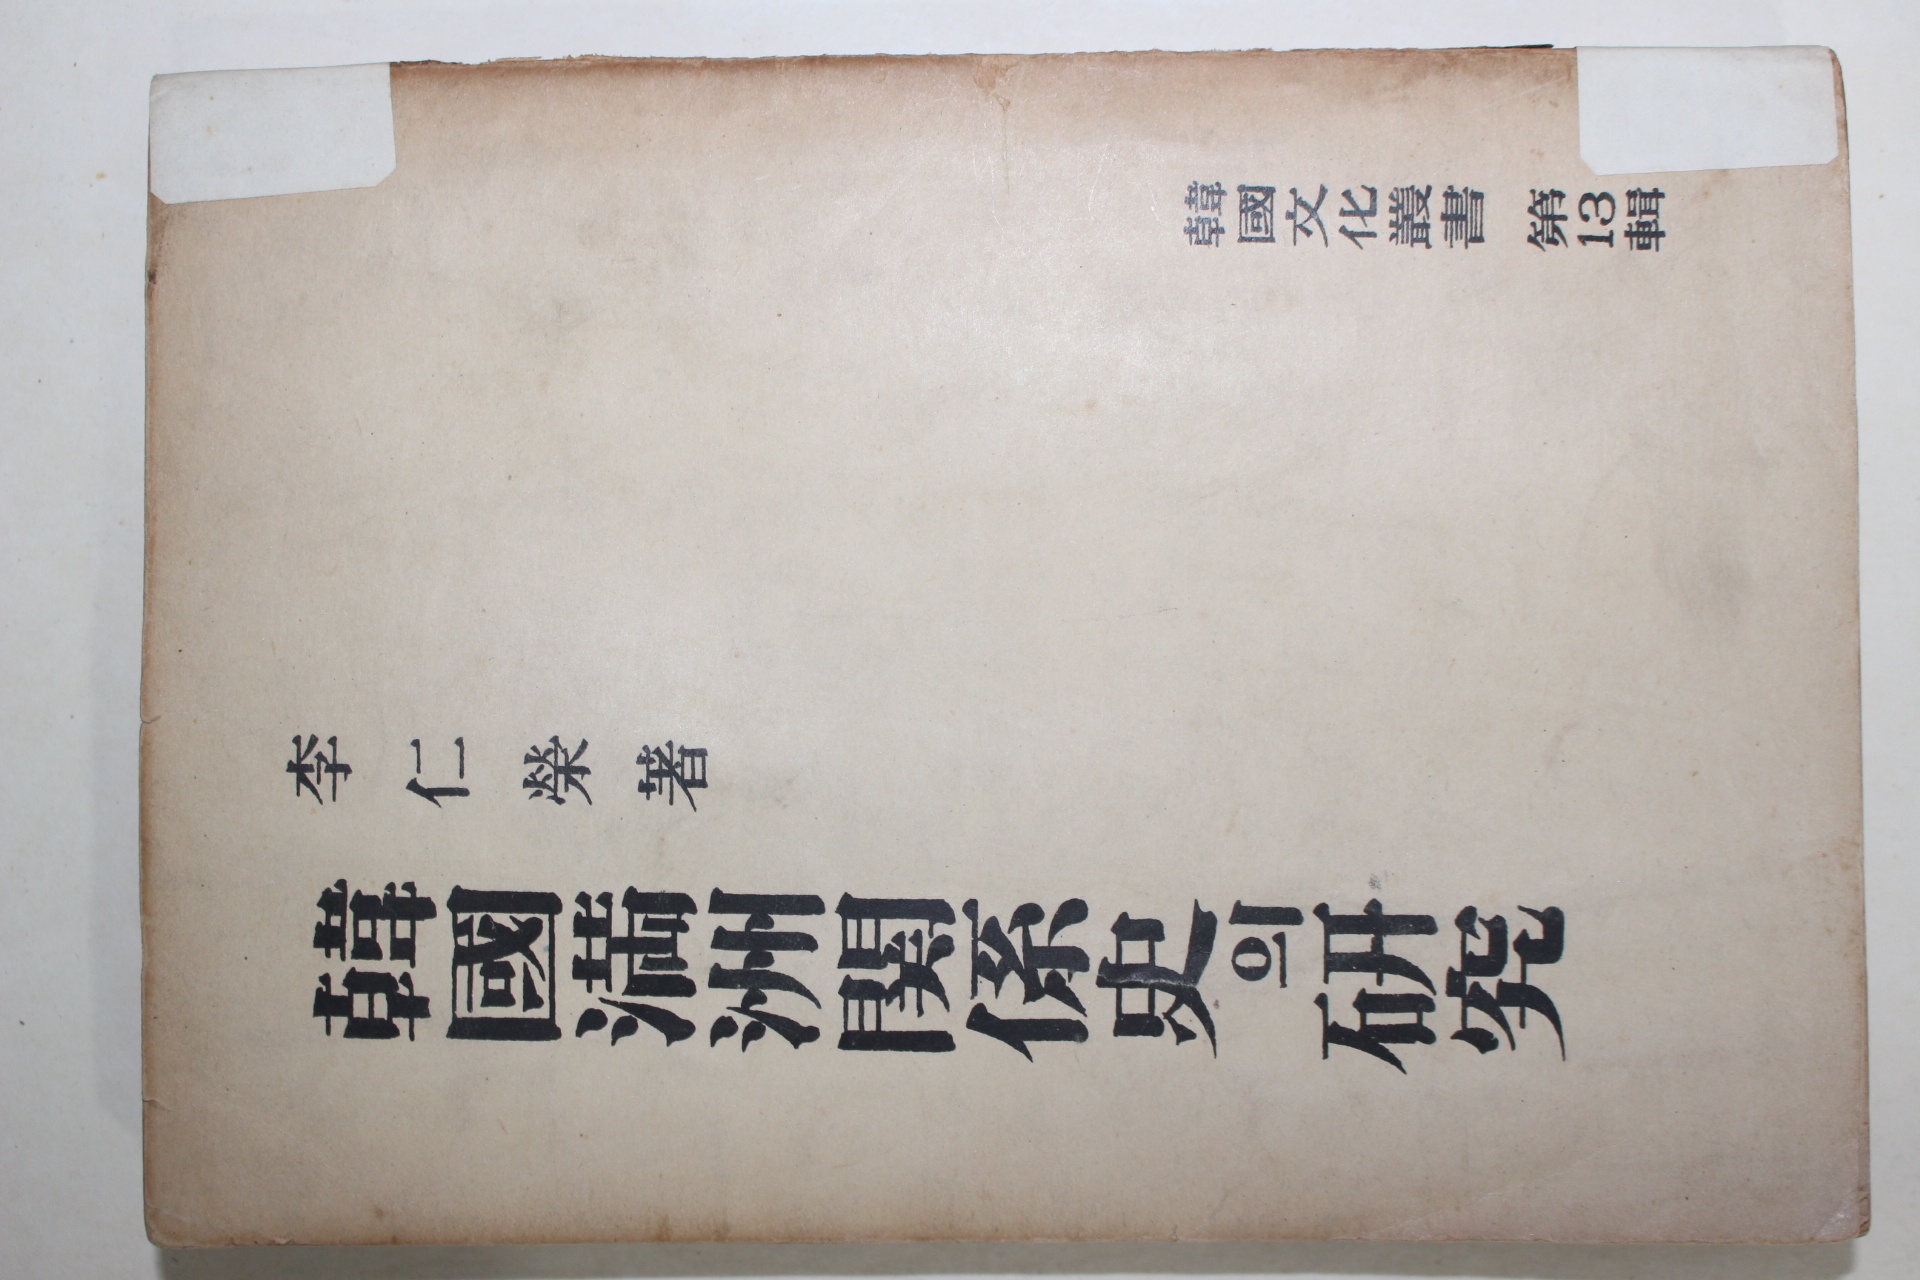 韓國滿洲關係史의 研究
李仁榮著
韓國文化叢書 第13輯